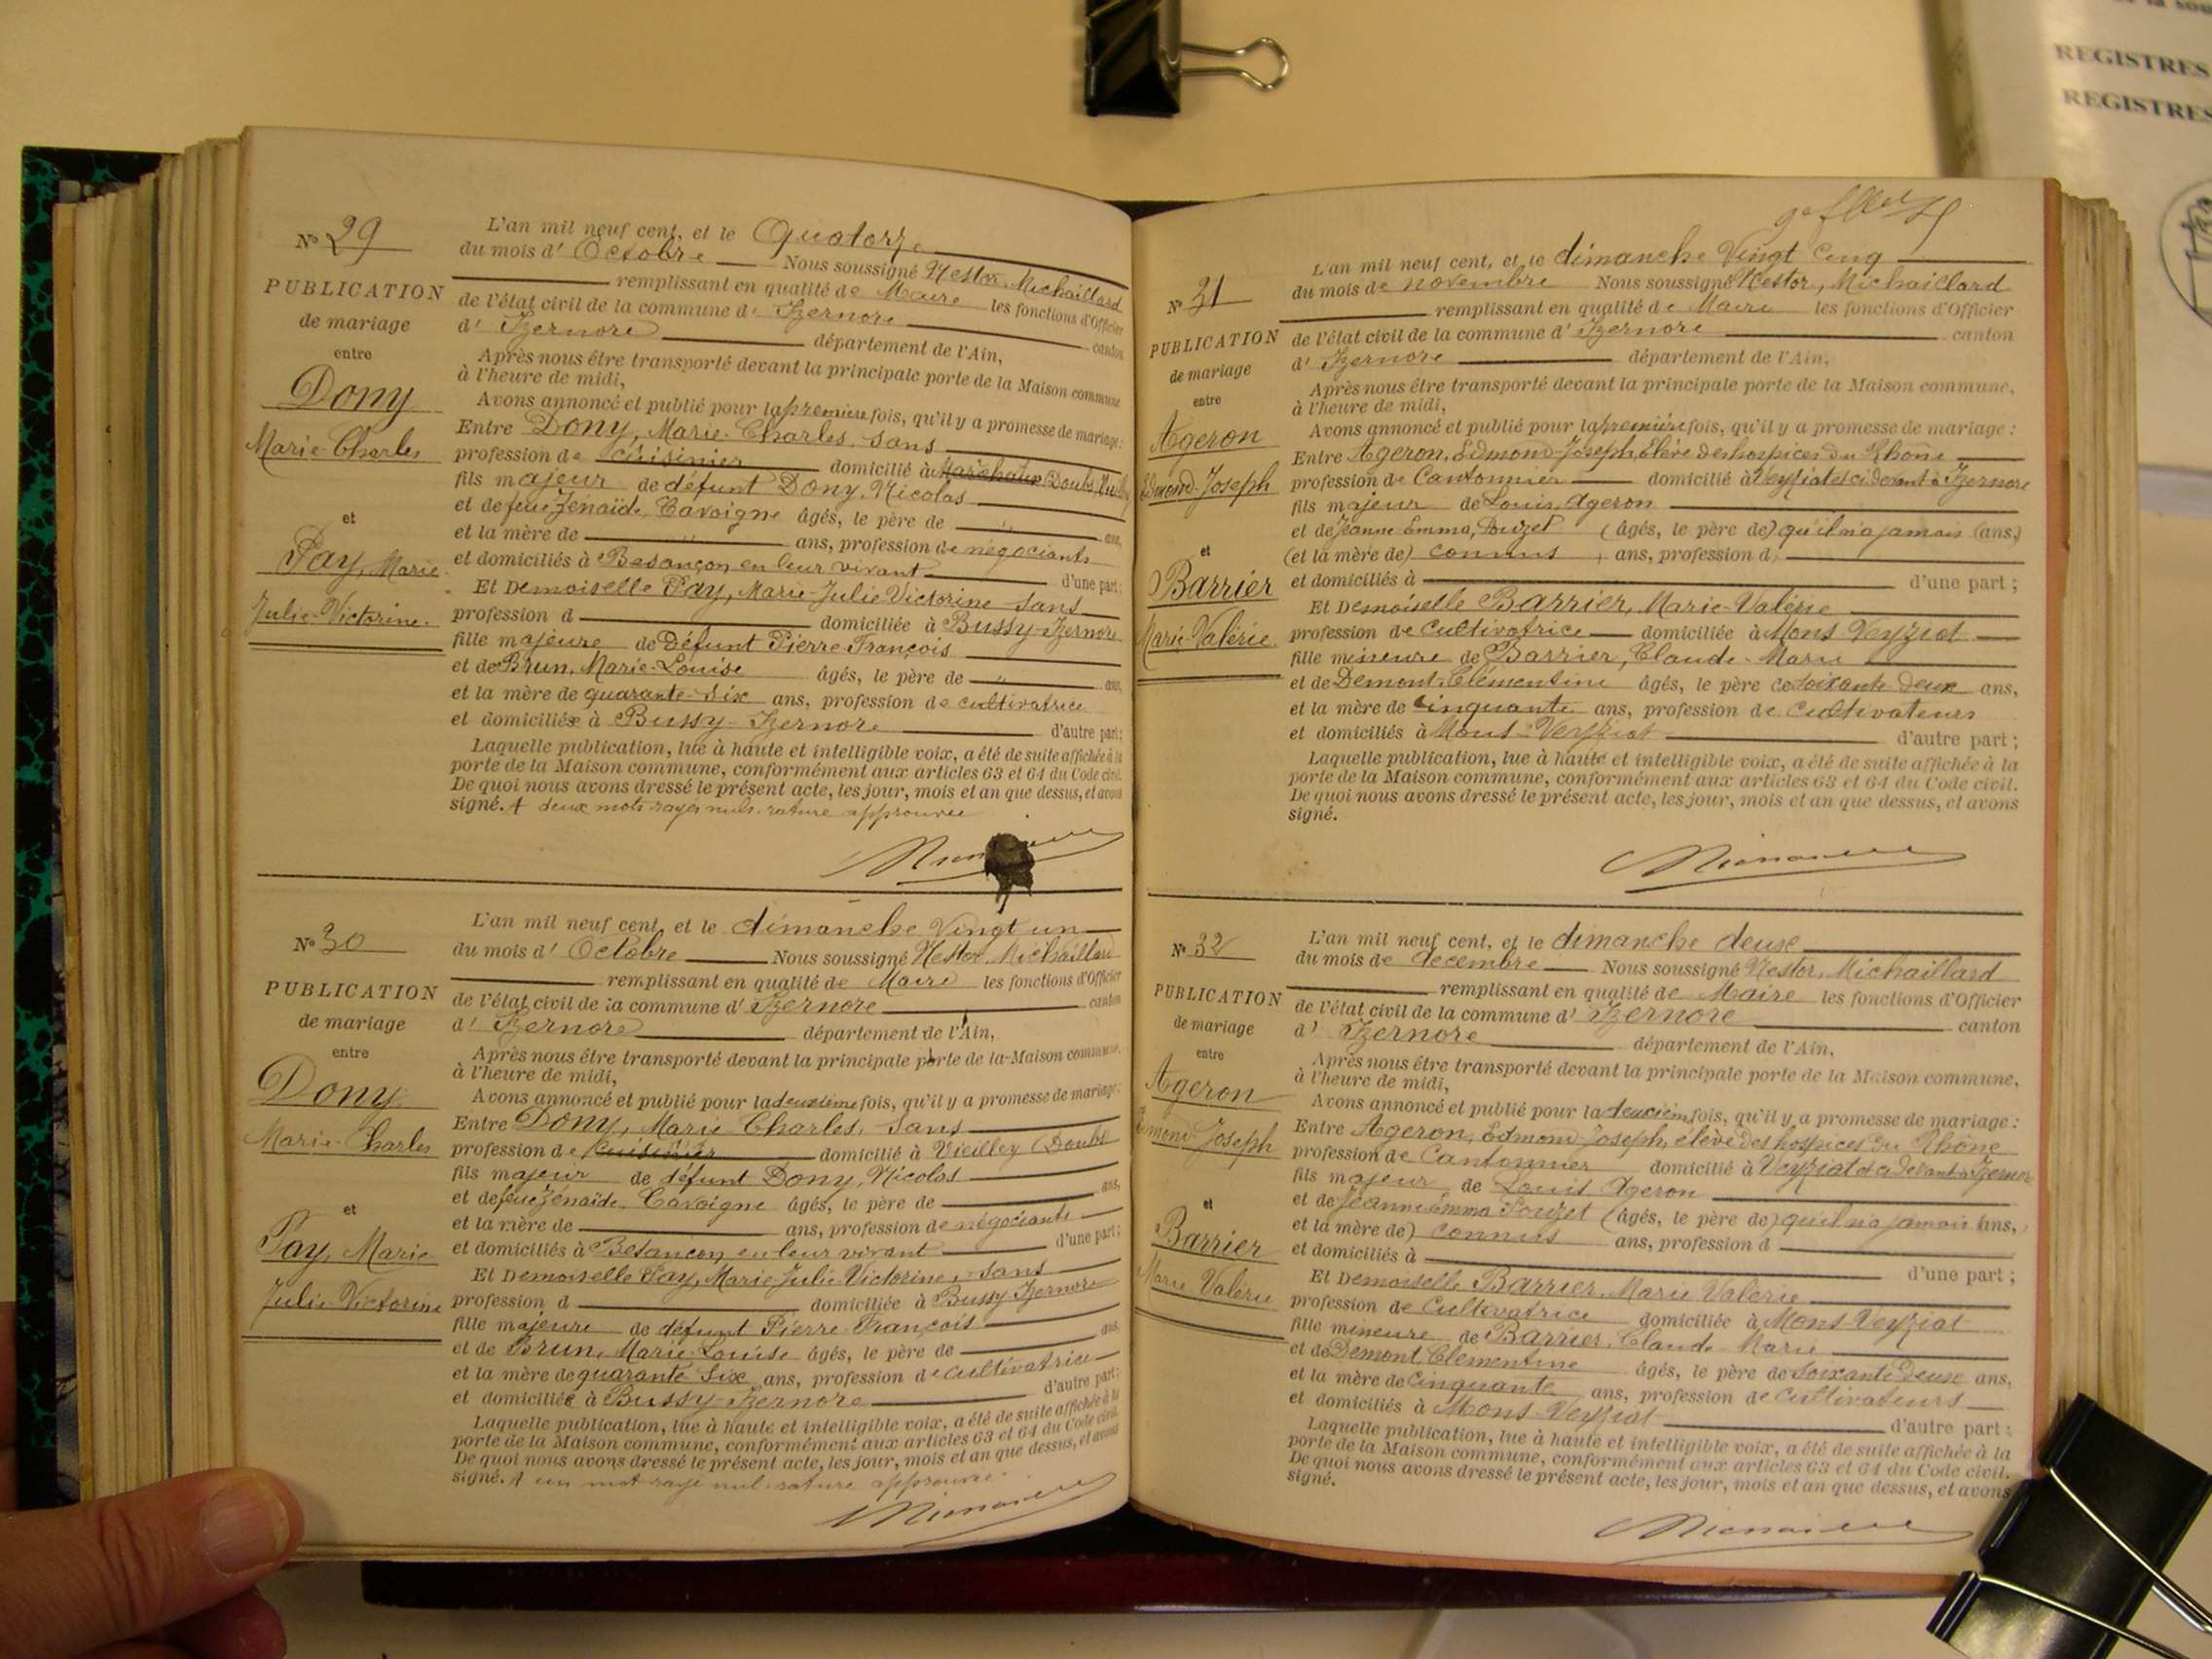 REGISTRES
REGISTRES
N° 29
PUBLICATION
de mariage
entre
Dony
Marie-Charles
et
Pay, Marie
Julie-Victorine.
L'an mil neuf cent, et le Quatorze
du mois d' Octobre Nous soussigné Nestor, Michaillard
remplissant en qualité de Maire les fonctions d'Officier
de l'état civil de la commune d' Izernore canton
d' Izernore département de l'Ain,
Après nous être transporté devant la principale porte de la Maison commune
à l'heure de midi,
Avons annoncé et publié pour la première fois, qu'il y a promesse de mariage:
Entre Dony, Marie-Charles, sans
profession de cuisinier domicilié à Doubs
fils majeur de défunt Dony, Nicolas
et de feue Zénaïde, Cavaigne âgés, le père de " ans,
et la mère de " ans, profession de négociants
et domiciliés à Besançon en leur vivant d'une part;
Et Demoiselle Pay, Marie-Julie Victorine sans
profession d domiciliée à Bussy-Izernore
fille majeure de Défunt Pierre François
et de Brun, Marie-Louise âgés, le père de " ans,
et la mère de quarante-six ans, profession de cultivatrice
et domiciliée à Bussy-Izernore d'autre part;
Laquelle publication, lue à haute et intelligible voix, a été de suite affichée à la
porte de la Maison commune, conformément aux articles 63 et 64 du Code civil.
De quoi nous avons dressé le présent acte, les jour, mois et an que dessus, et avons
signé. deux mots rayés nuls. rature approuvée
N° 30
PUBLICATION
de mariage
entre
Dony
Marie-Charles
et
Pay, Marie
Julie-Victorine
L'an mil neuf cent, et le dimanche Vingt un
du mois d' Octobre Nous soussigné Nestor, Michaillard
remplissant en qualité de Maire les fonctions d'Officier
de l'état civil de la commune d' Izernore canton
d' Izernore département de l'Ain,
Après nous être transporté devant la principale porte de la Maison commune.
à l'heure de midi,
Avons annoncé et publié pour la deuxième fois, qu'il y a promesse de mariage:
Entre Dony, Marie Charles, sans
profession de cuisinier domicilié à Vieilley (Doubs)
fils majeur de défunt Dony, Nicolas
et de feue Zénaïde, Cavaigne âgés, le père de ans,
et la mère de ans, profession de négociants
et domiciliés à Besançon en leur vivant d'une part;
Et Demoiselle Pay, Marie Julie Victorine, sans
profession d domiciliée à Bussy Izernore
fille majeure de défunt Pierre François
et de Brun, Marie-Louise âgés, le père de ans,
et la mère de quarante six ans, profession de cultivatrice
et domiciliée à Bussy-Izernore d'autre part;
Laquelle publication, lue à haute et intelligible voix, a été de suite affichée à la
porte de la Maison commune, conformément aux articles 63 et 64 du Code civil.
De quoi nous avons dressé le présent acte, les jour, mois et an que dessus, et avons
signé. un mot rayé nul. rature approuvée
N° 31
PUBLICATION
de mariage
entre
Ageron
Edmond-Joseph
et
Barrier
Marie-Valérie
L'an mil neuf cent, et le dimanche Vingt Cinq
du mois de novembre Nous soussigné Nestor, Michaillard
remplissant en qualité de Maire les fonctions d'Officier
de l'état civil de la commune d' Izernore canton
d' Izernore département de l'Ain,
Après nous être transporté devant la principale porte de la Maison commune,
à l'heure de midi,
Avons annoncé et publié pour la première fois, qu'il y a promesse de mariage :
Entre Ageron, Edmond-Joseph, élève des hospices du Rhône
profession de Cantonnier domicilié à Veyziat et ci devant à Izernore
fils majeur de Louis, Ageron
et de Jeanne Emma, Pouzet (âgés, le père de) qu'il n'a jamais (ans,)
(et la mère de) connus ans, profession d
et domiciliés à d'une part ;
Et Demoiselle Barrier, Marie-Valérie
profession de Cultivatrice domiciliée à Mons Veyziat
fille mineure de Barrier, Claude-Marie
et de Demont, Clémentine âgés, le père de soixante deux ans,
et la mère de cinquante ans, profession de cultivateurs
et domiciliés à Mons-Veyziat d'autre part ;
Laquelle publication, lue à haute et intelligible voix, a été de suite affichée à la
porte de la Maison commune, conformément aux articles 63 et 64 du Code civil.
De quoi nous avons dressé le présent acte, les jour, mois et an que dessus, et avons
signé.
N° 32
PUBLICATION
de mariage
entre
Ageron
Edmond-Joseph
et
Barrier
Marie Valérie
L'an mil neuf cent, et le dimanche deux
du mois de decembre Nous soussigné Nestor, Michaillard
remplissant en qualité de Maire les fonctions d'Officier
de l'état civil de la commune d' Izernore canton
d' Izernore département de l'Ain,
Après nous être transporté devant la principale porte de la Maison commune,
à l'heure de midi,
Avons annoncé et publié pour la deuxième fois, qu'il y a promesse de mariage :
Entre Ageron, Edmond Joseph, élève des hospices du Rhône
profession de Cantonnier domicilié à Veyziat et ci devant à Izernore
fils majeur de Louis, Ageron
et de Jeanne Emma Pouzet (âgés, le père de) qu'il n'a jamais (ans,
et la mère de) connus ans, profession d
et domiciliés à d'une part ;
Et Demoiselle Barrier, Marie Valérie
profession de Cultivatrice domiciliée à Mons Veyziat
fille mineure de Barrier, Claude-Marie
et de Demont, Clementine âgés, le père de soixante deux ans,
et la mère de Cinquante ans, profession de Cultivateurs
et domiciliés à Mons-Veyziat d'autre part ;
Laquelle publication, lue à haute et intelligible voix, a été de suite affichée à la
porte de la Maison commune, conformément aux articles 63 et 64 du Code civil.
De quoi nous avons dressé le présent acte, les jour, mois et an que dessus, et avons
signé.